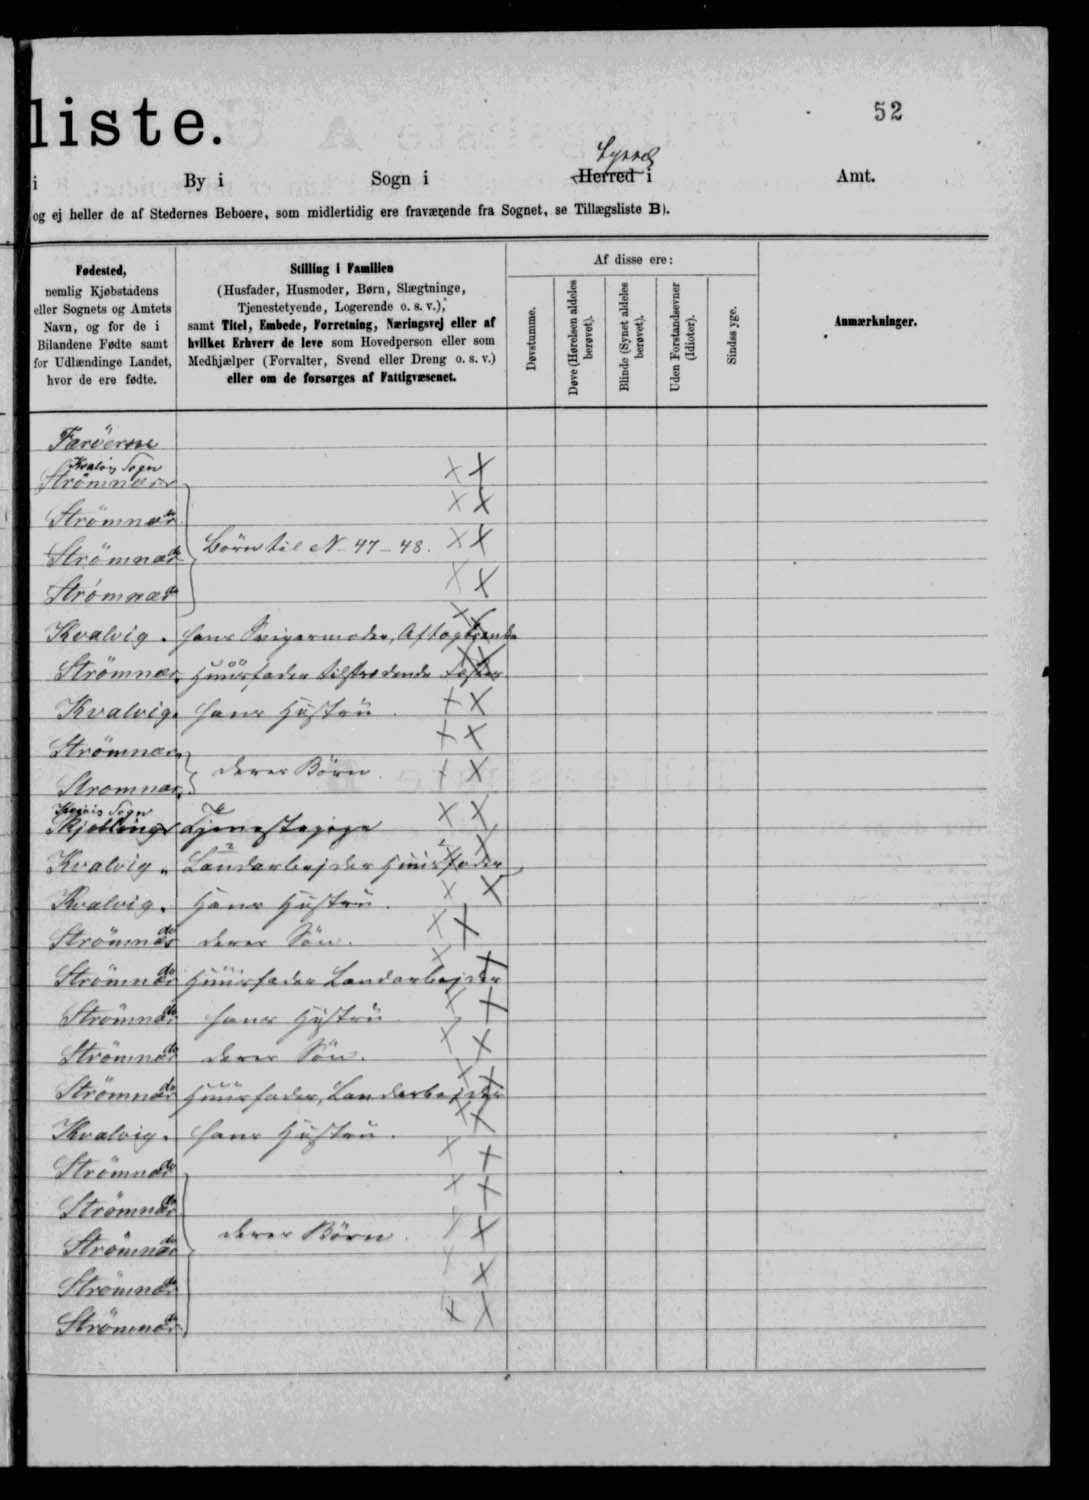 liste.
52
Syssel
i By i Sogn i Herred i Amt.
og ej heller de af Stedernes Beboere, som midlertidig ere fraværende fra Sognet, se Tillægsliste B).
Fødested,
nemlig Kjøbstadens
eller Sognets og Amtets
Navn, og for de i
Bilandene Fødte samt
for Udlændinge Landet,
hvor de ere fødte.
Stilling i Familien
(Husfader, Husmoder, Børn, Slægtninge,
Tjenestetyende, Logerende o. s. v.),
samt Titel, Embede, Forretning, Næringsvej eller af
hvilket Erhverv de leve som Hovedperson eller som
Medhjælper (Forvalter, Svend eller Dreng o. s. v.)
eller om de forsørges af Fattigvæsenet.
Af disse ere:
Døvstumme.
Døve (Hørelsen aldeles
berøvet).
Blinde (Synet aldeles
berøvet).
Uden Forstandsevner
(Idioter).
Sindss yge.
Anmærkninger.
Faröerne
Kvalvig Sogn
Strömnæs X X
Strömnæs do X X
Strömnæs do Börn til N. 47-48. X X
Strömnæs do X X
Kvalvig. hans Svigermoder, Aftægtsenke
Strömnæs Huusfader tilstrædende Fæster
Kvalvig. hans Hustru. X X
Strömnæs X X
Strömnæs deres Börn. X X
Sogn
Tjenestepige X X
Kvalvig. Landarbejder Huusfader
Kvalvig. Hans Hustru. X X
Strömnæs do deres Sön. X X
Strömnæs do Huusfader Landarbejder
Strömnæs do hans Hustru X X
Strömnæs do deres Sön. X X
Strömnæs do Huusfader, Landarbejder
Kvalvig. hans Hustru. X X
Strömnæs do X X
Strömnæs do X X
Strömnæs do deres Börn. X X
Strömnæs do X X
Strömnæs do X X